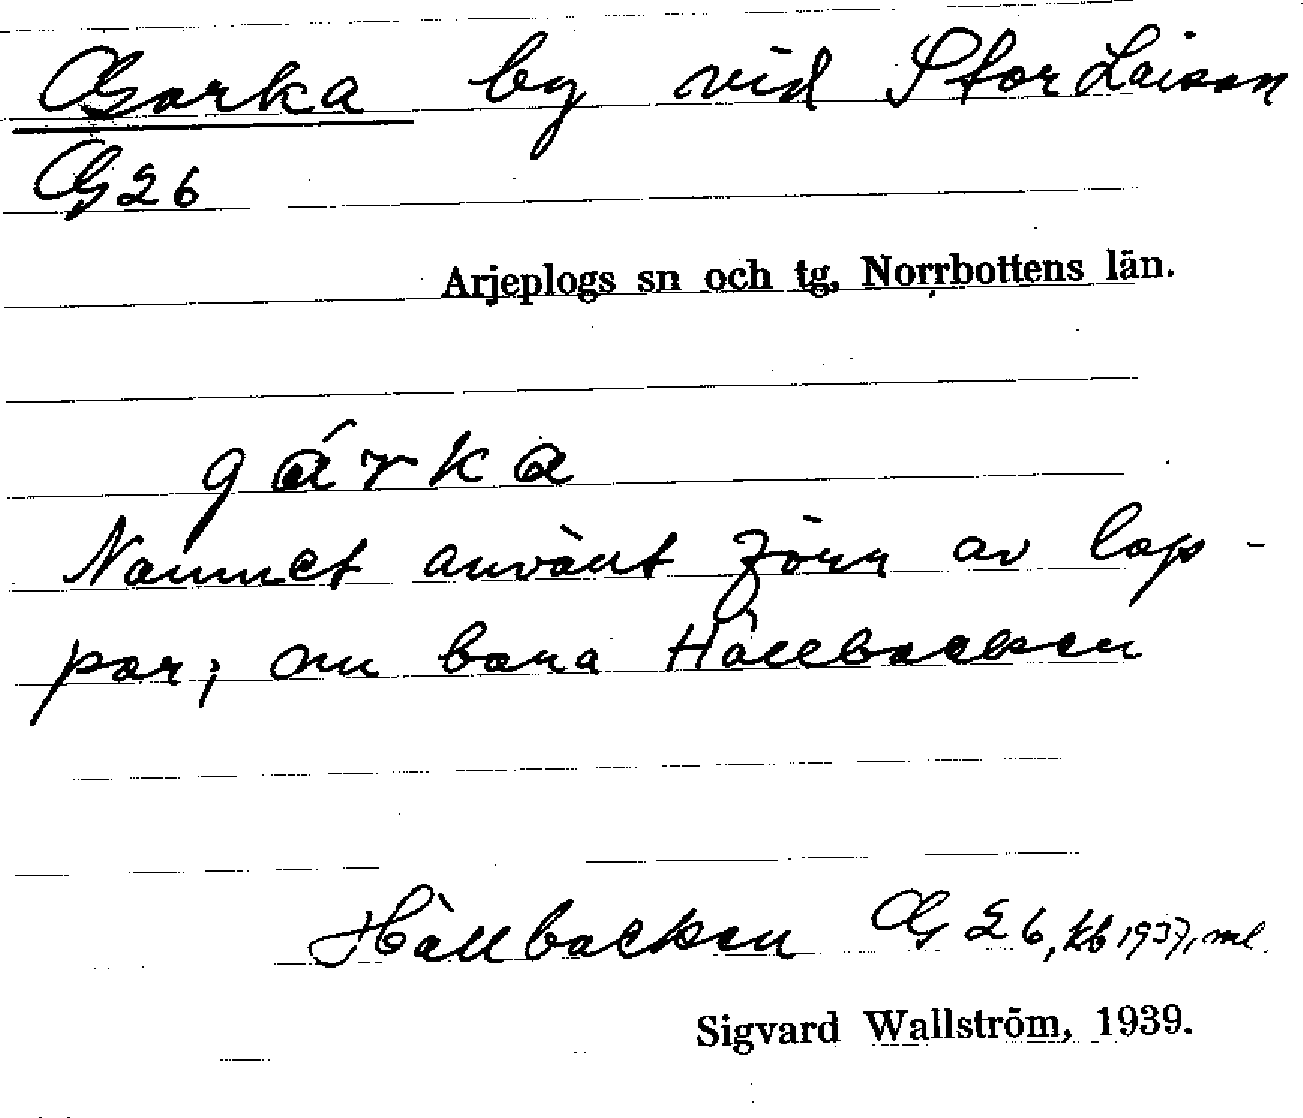 Garka by vid Stor Laisan
G 2 b
Arjeplogs sn och tg, Norrbottens län.
gárka
Namnet använt förr av lap-
par; nu bara Hällbacken
Hällbacken G 2 b, kb 1937, ml.
Sigvard Wallström, 1939.